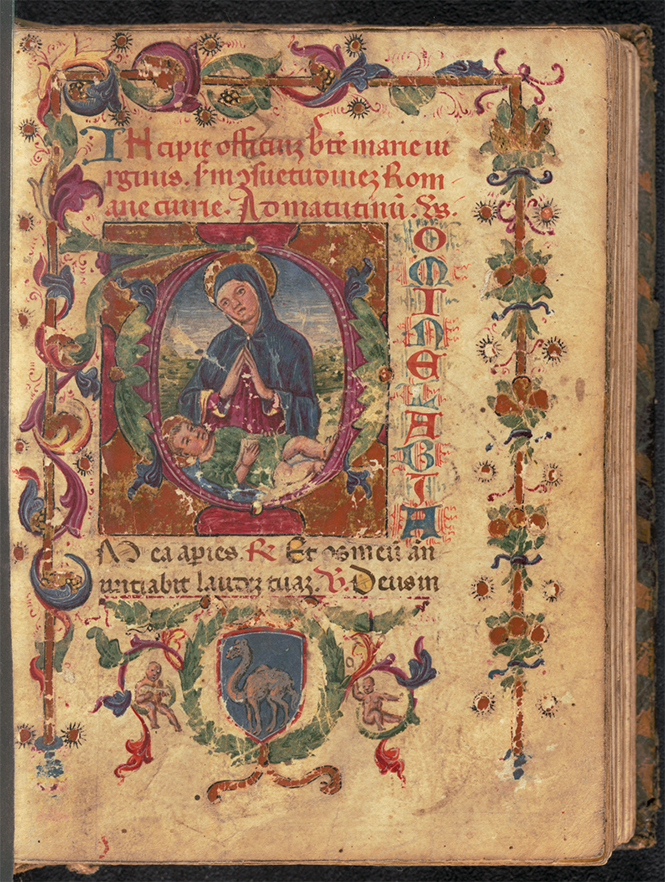 INcipit officiuz bt̄e marie ui
rginis. s̄m ↄsuetudinez Rom
ane curie. Ad matutinū. Vs.
D
OMINE LABIA
Mea apies. R Et os meū an
nutiabit laudez tuaz. V. Deus in